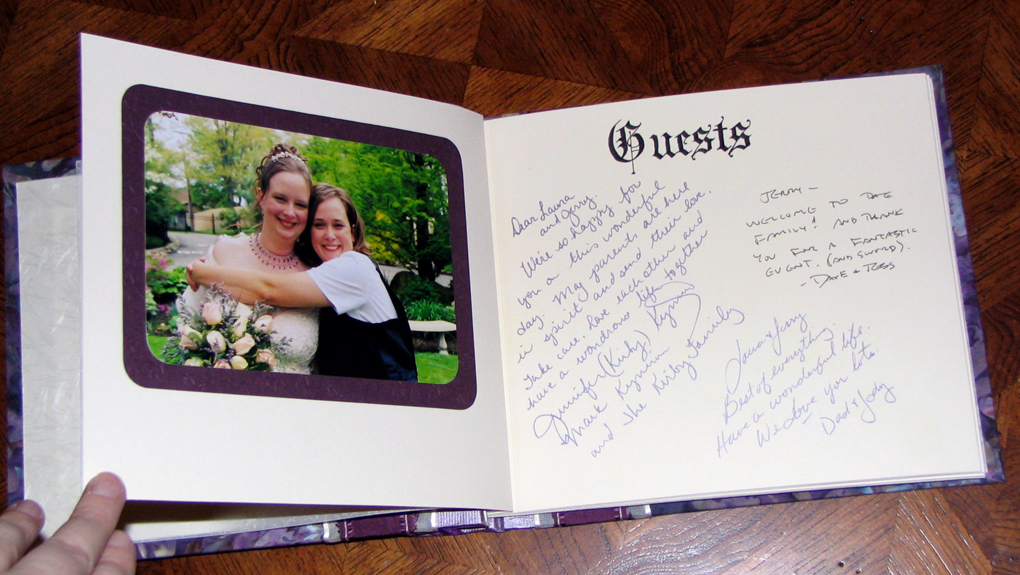 Guests
Dear Laura
and Jerry,
We're so happy for
you on this wonderful
day. May parents are here
in spirit and send their love.
Take care, love each other and
have a wondrous life together
Jennifer (Kirby) Kynin
Mark Kynin
and the Kirby Family
JERRY -
WELCOME TO THE
FAMILY! AND THANK
YOU FOR A FANTASTIC
EVENT. (AND SWORD).
- DAVE + TESS
Laura + Jerry
Best of everything.
Have a wonderful life.
We Love you lots
Dad + Jody